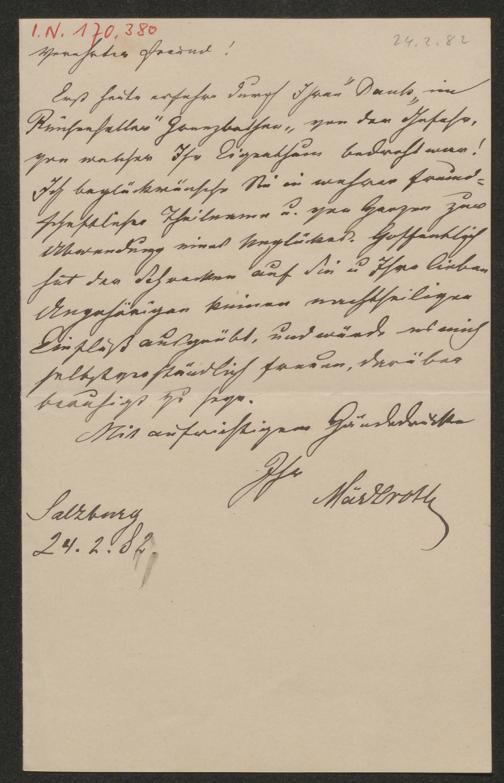 I.N. 170.380
24.2.82
Verehrter Freund!
Erst heute erfahre durch Ihren "Dank" im
"Reichenhaller Grenzboten" von der Gefahr,
von welcher Ihr Eigenthum bedroht war!
Ich beglückwünsche Sie in wahrer freund-
schaftlicher Theilname u. von Herzen zur
Abwendung eines Unglückes. Hoffentlich
hat der Schrecken auf Sie u Ihre lieben
Angehörigen keinen nachtheiligen
Einfluß ausgeübt, und würde es mich
selbstverständlich freuen, darüber
beruhigt zu seyn.
Mit aufrichtigem Händedrucke
Ihr
Märzroth
Salzburg
24.2.82